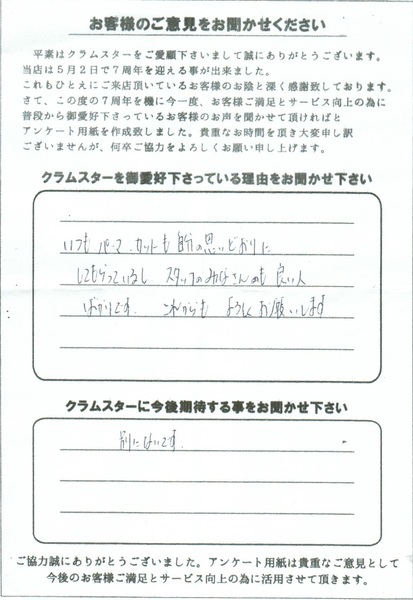 お客様のご意見をお聞かせください
平素はクラムスターをご愛顧下さいまして誠にありがとうございます。
当店は5月2日で7周年を迎える事が出来ました。
これもひとえにご来店頂いているお客様のお陰と深く感謝致しております。
さて、この度の7周年を機に今一度、お客様ご満足とサービス向上の為に
普段から御愛好下さっているお客様のお声を聞かせて頂ければと
アンケート用紙を作成致しました。貴重なお時間を頂き大変申し訳
ございませんが、何卒ご協力をよろしくお願い申し上げます。
クラムスターを御愛好下さっている理由をお聞かせ下さい
いつも パーマ、カットも 自分の思いどおりに
してもらっているし スタッフのみなさんも 良い人
ばかりです。 これからも よろしくお願いします
クラムスターに今後期待する事をお聞かせ下さい
別にないです。
ご協力誠にありがとうございました。アンケート用紙は貴重なご意見として
今後のお客様ご満足とサービス向上の為に活用させて頂きます。